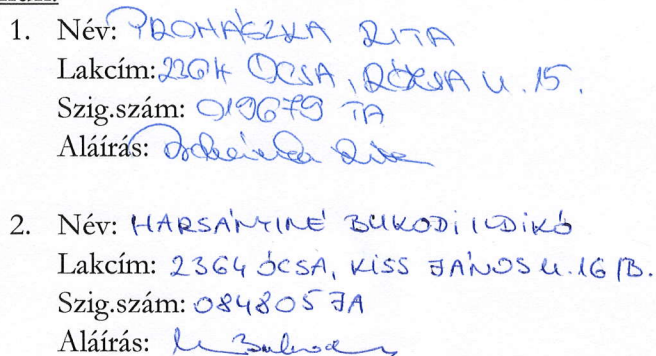 1. Név: PROHÁSZKA RITA
Lakcím: 2364 ÓCSA, RÓZSA U. 15.
Szig.szám: 019679 TA
Aláírás: Prohászka Rita
2. Név: HARSÁNYINÉ BUKODI ILDIKÓ
Lakcím: 2364 ÓCSA, KISS JÁNOS U. 16/B.
Szig.szám: 084805 JA
Aláírás: